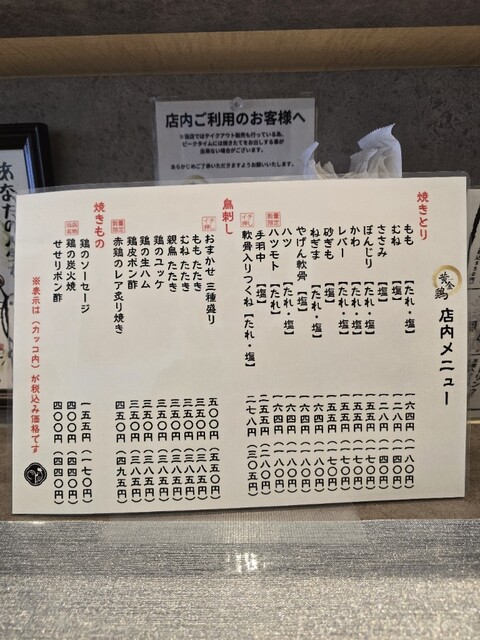 店内ご利用のお客様へ
※当店ではテイクアウト販売も行っている為、
ピークタイムには焼きたてをお出しする事が
出来ない場合がございます。
あらかじめご了承いただきますようお願いいたします。
あなたの
黄金鶏 店内メニュー
焼きとり
もも【たれ・塩】 一六四円(一八〇円)
むね【塩】 一二八円(一四〇円)
ささみ【塩】 一二八円(一四〇円)
ぼんじり【たれ・塩】 一五五円(一七〇円)
かわ【たれ・塩】 一五五円(一七〇円)
レバー【たれ・塩】 一五五円(一七〇円)
砂ぎも【塩】 一五五円(一七〇円)
ねぎま【たれ・塩】 一六四円(一八〇円)
やげん軟骨【塩】 一六四円(一八〇円)
ハツ【たれ・塩】 一六四円(一八〇円)
数量限定 ハツモト【たれ・塩】 一六四円(一八〇円)
手羽中【塩】 二五五円(二八〇円)
イチ押し 軟骨入りつくね【たれ・塩】 二七八円(三〇五円)
鳥刺し
イチ押し おまかせ 三種盛り 五〇〇円(五五〇円)
もも たたき 三五〇円(三八五円)
むね たたき 三五〇円(三八五円)
親鳥 たたき 三五〇円(三八五円)
鶏のユッケ 三五〇円(三八五円)
鶏の生ハム 三五〇円(三八五円)
鶏皮ポン酢 三五〇円(三八五円)
数量限定 赤鶏のレア炙り焼き 四五〇円(四九五円)
焼きもの
鶏のソーセージ 一五五円(一七〇円)
鶏の炭火焼 四〇〇円(四四〇円)
せせりポン酢 四〇〇円(四四〇円)
※表示は(カッコ内)が税込み価格です